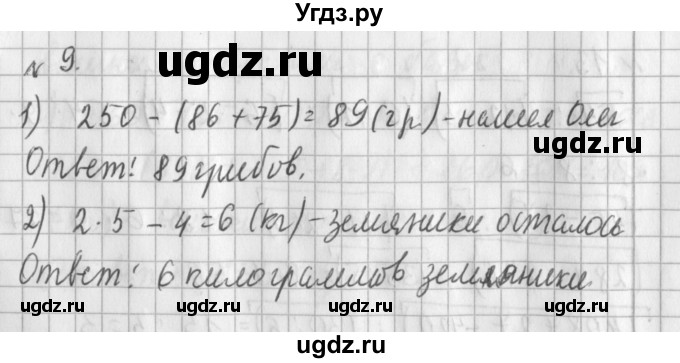 Угдз.ру
№ 9.
ugdz.ru
1) 250 - (86 + 75) = 89 (гр) - нашел Олег
Ответ: 89 грибов.
ugdz.ru
2) 2 · 5 - 4 = 6 (кг) - земляники осталось
Ответ: 6 килограммов земляники
ugdz.ru ugdz.ru ugdz.ru
ugdz.ru